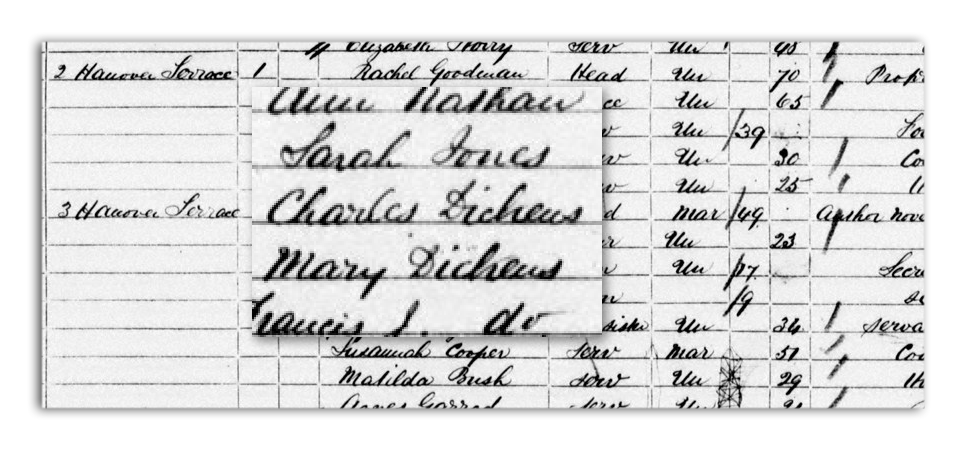 Elizabeth Storry Serv Un 45
2 Hanover Terrace 1 Rachel Goodman Head Un 70
Ann Nathan Un 65
Un 39
Sarah Jones Un 30 Co
Un 25
3 Hanover Terrace Charles Dickens d Mar 49 Author nove
Mary Dickens Un 23
Un 17 Secre
9
Francis J. do sister Un 34 Serva
Susannah Cooper Serv Mar 51 Coo
Matilda Bush Serv Un 29
Agnes Garrod Serv Un